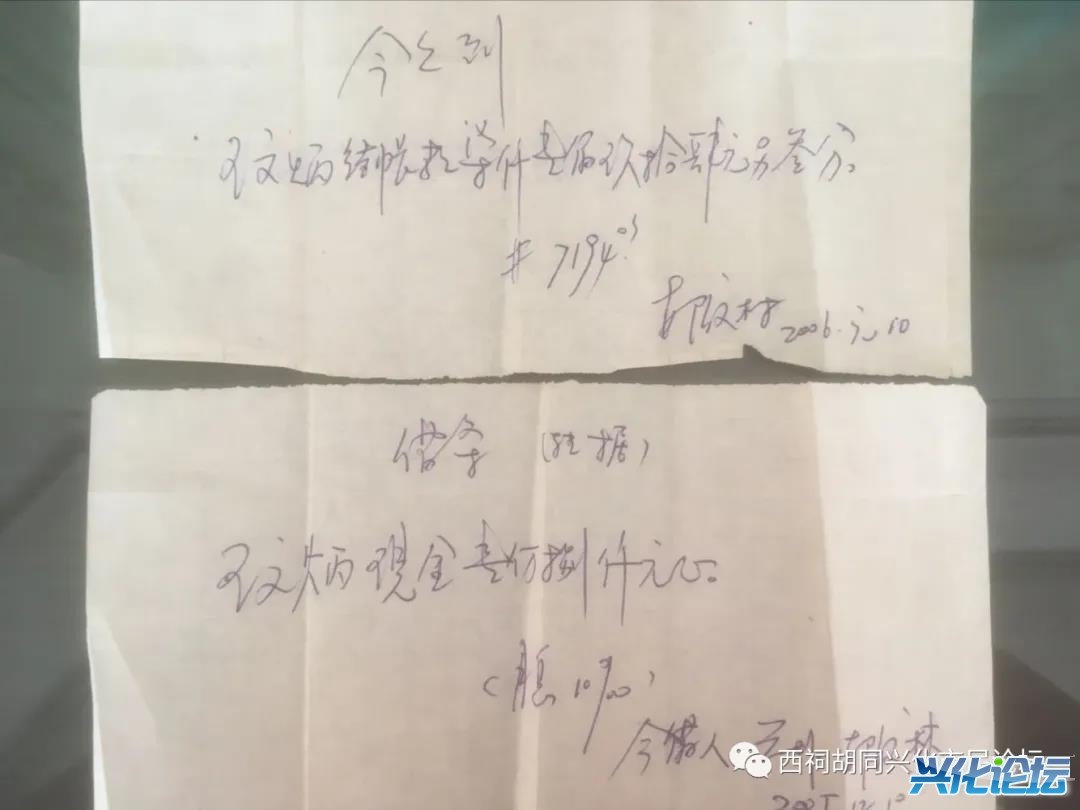 今欠到
王文炳结帐款柒仟壹佰玖拾肆元另叁分。
# 7194.03
2006.元.10
借条 (驻据)
王文炳现金壹万捌仟元正。
(月息10‰)
今借人
西祠胡同兴化市民论坛
兴化论坛